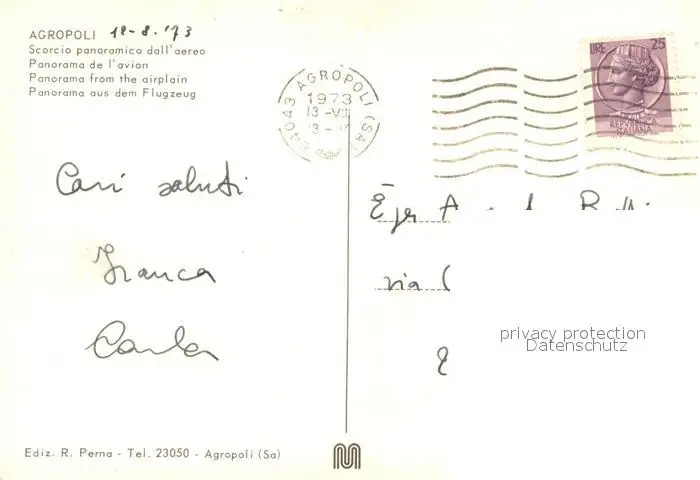 AGROPOLI 12-8.'73
Scorcio panoramico dall'aereo
Panorama de l'avion
Panorama from the airplain
Panorama aus dem Flugzeug
84043 AGROPOLI (SA)
1973
13 -VIII
LIRE 25
REPVBBLICA
ITALIANA
Cari saluti
Franca
Carla
Egr
via
privacy protection
Datenschutz
Ediz. R. Perna - Tel. 23050 - Agropoli (Sa)